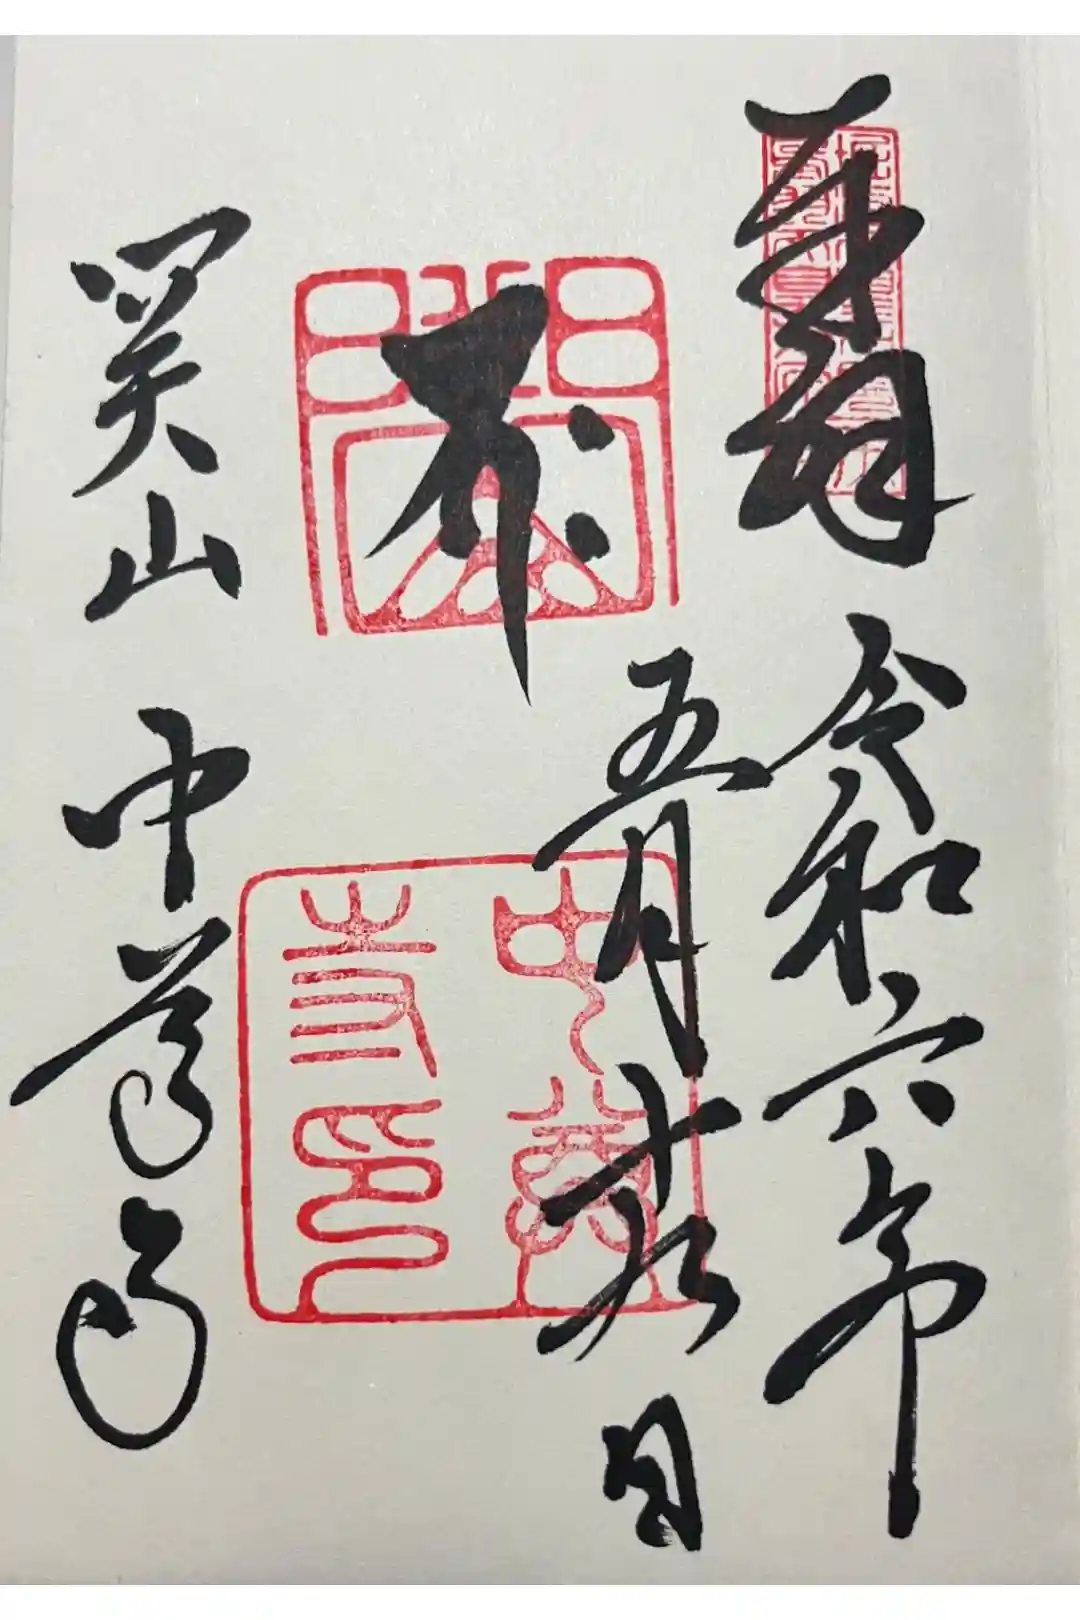 奉拝
令和六年
五月
日
関山 中尊寺
中尊
寺印